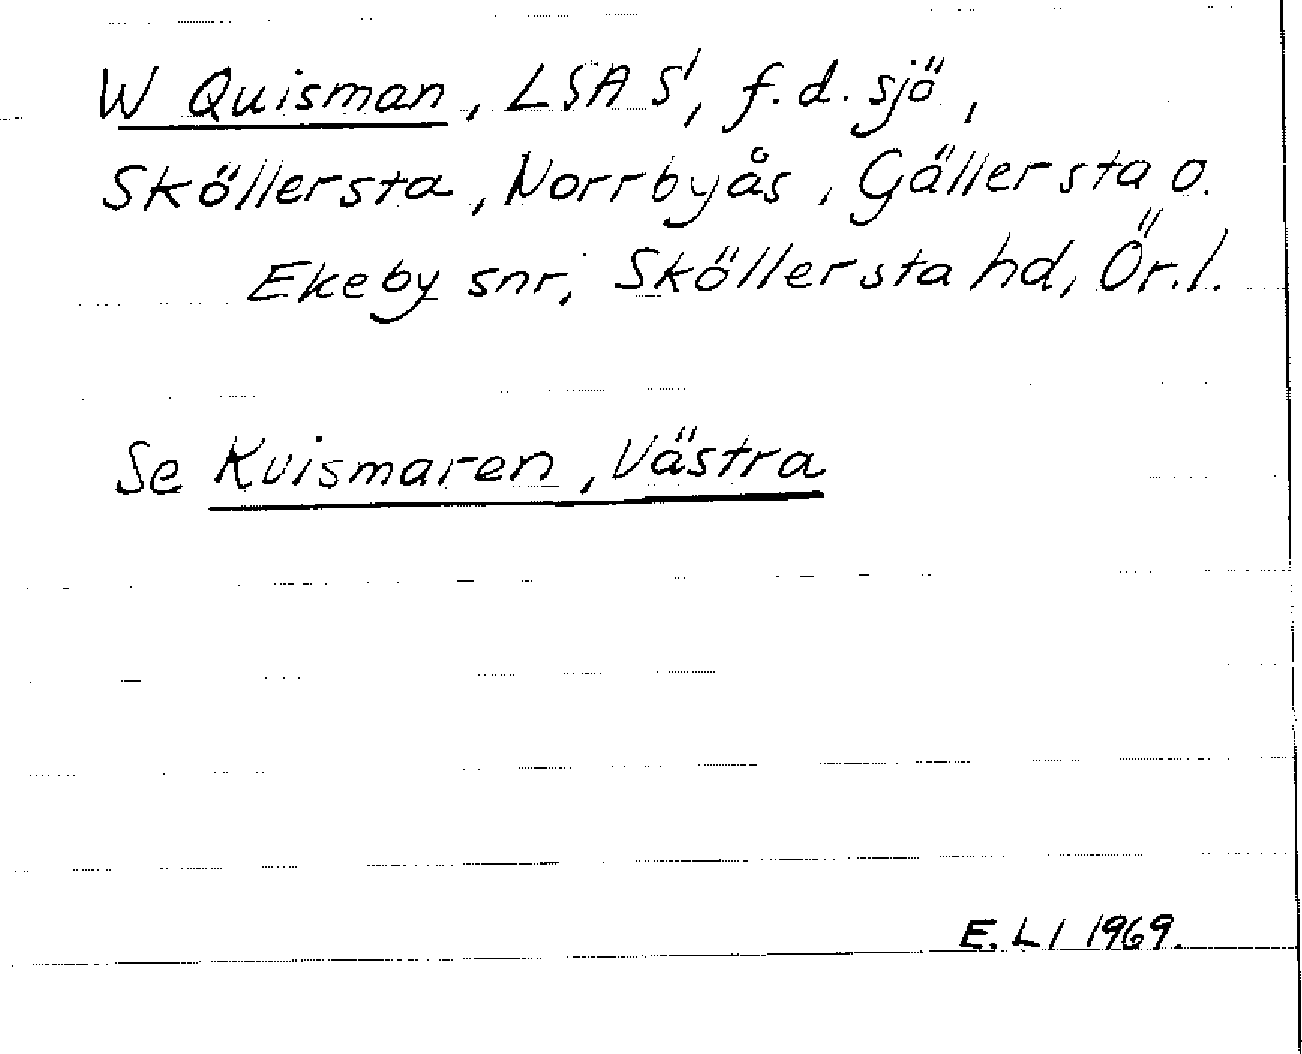 W Quisman, LSA S1, f.d. sjö,
Sköllersta, Norrbyås, Gällersta o.
Ekeby snr, Sköllersta hd, Ör.l.
Se Kvismaren, Västra
E. Ll 1969.